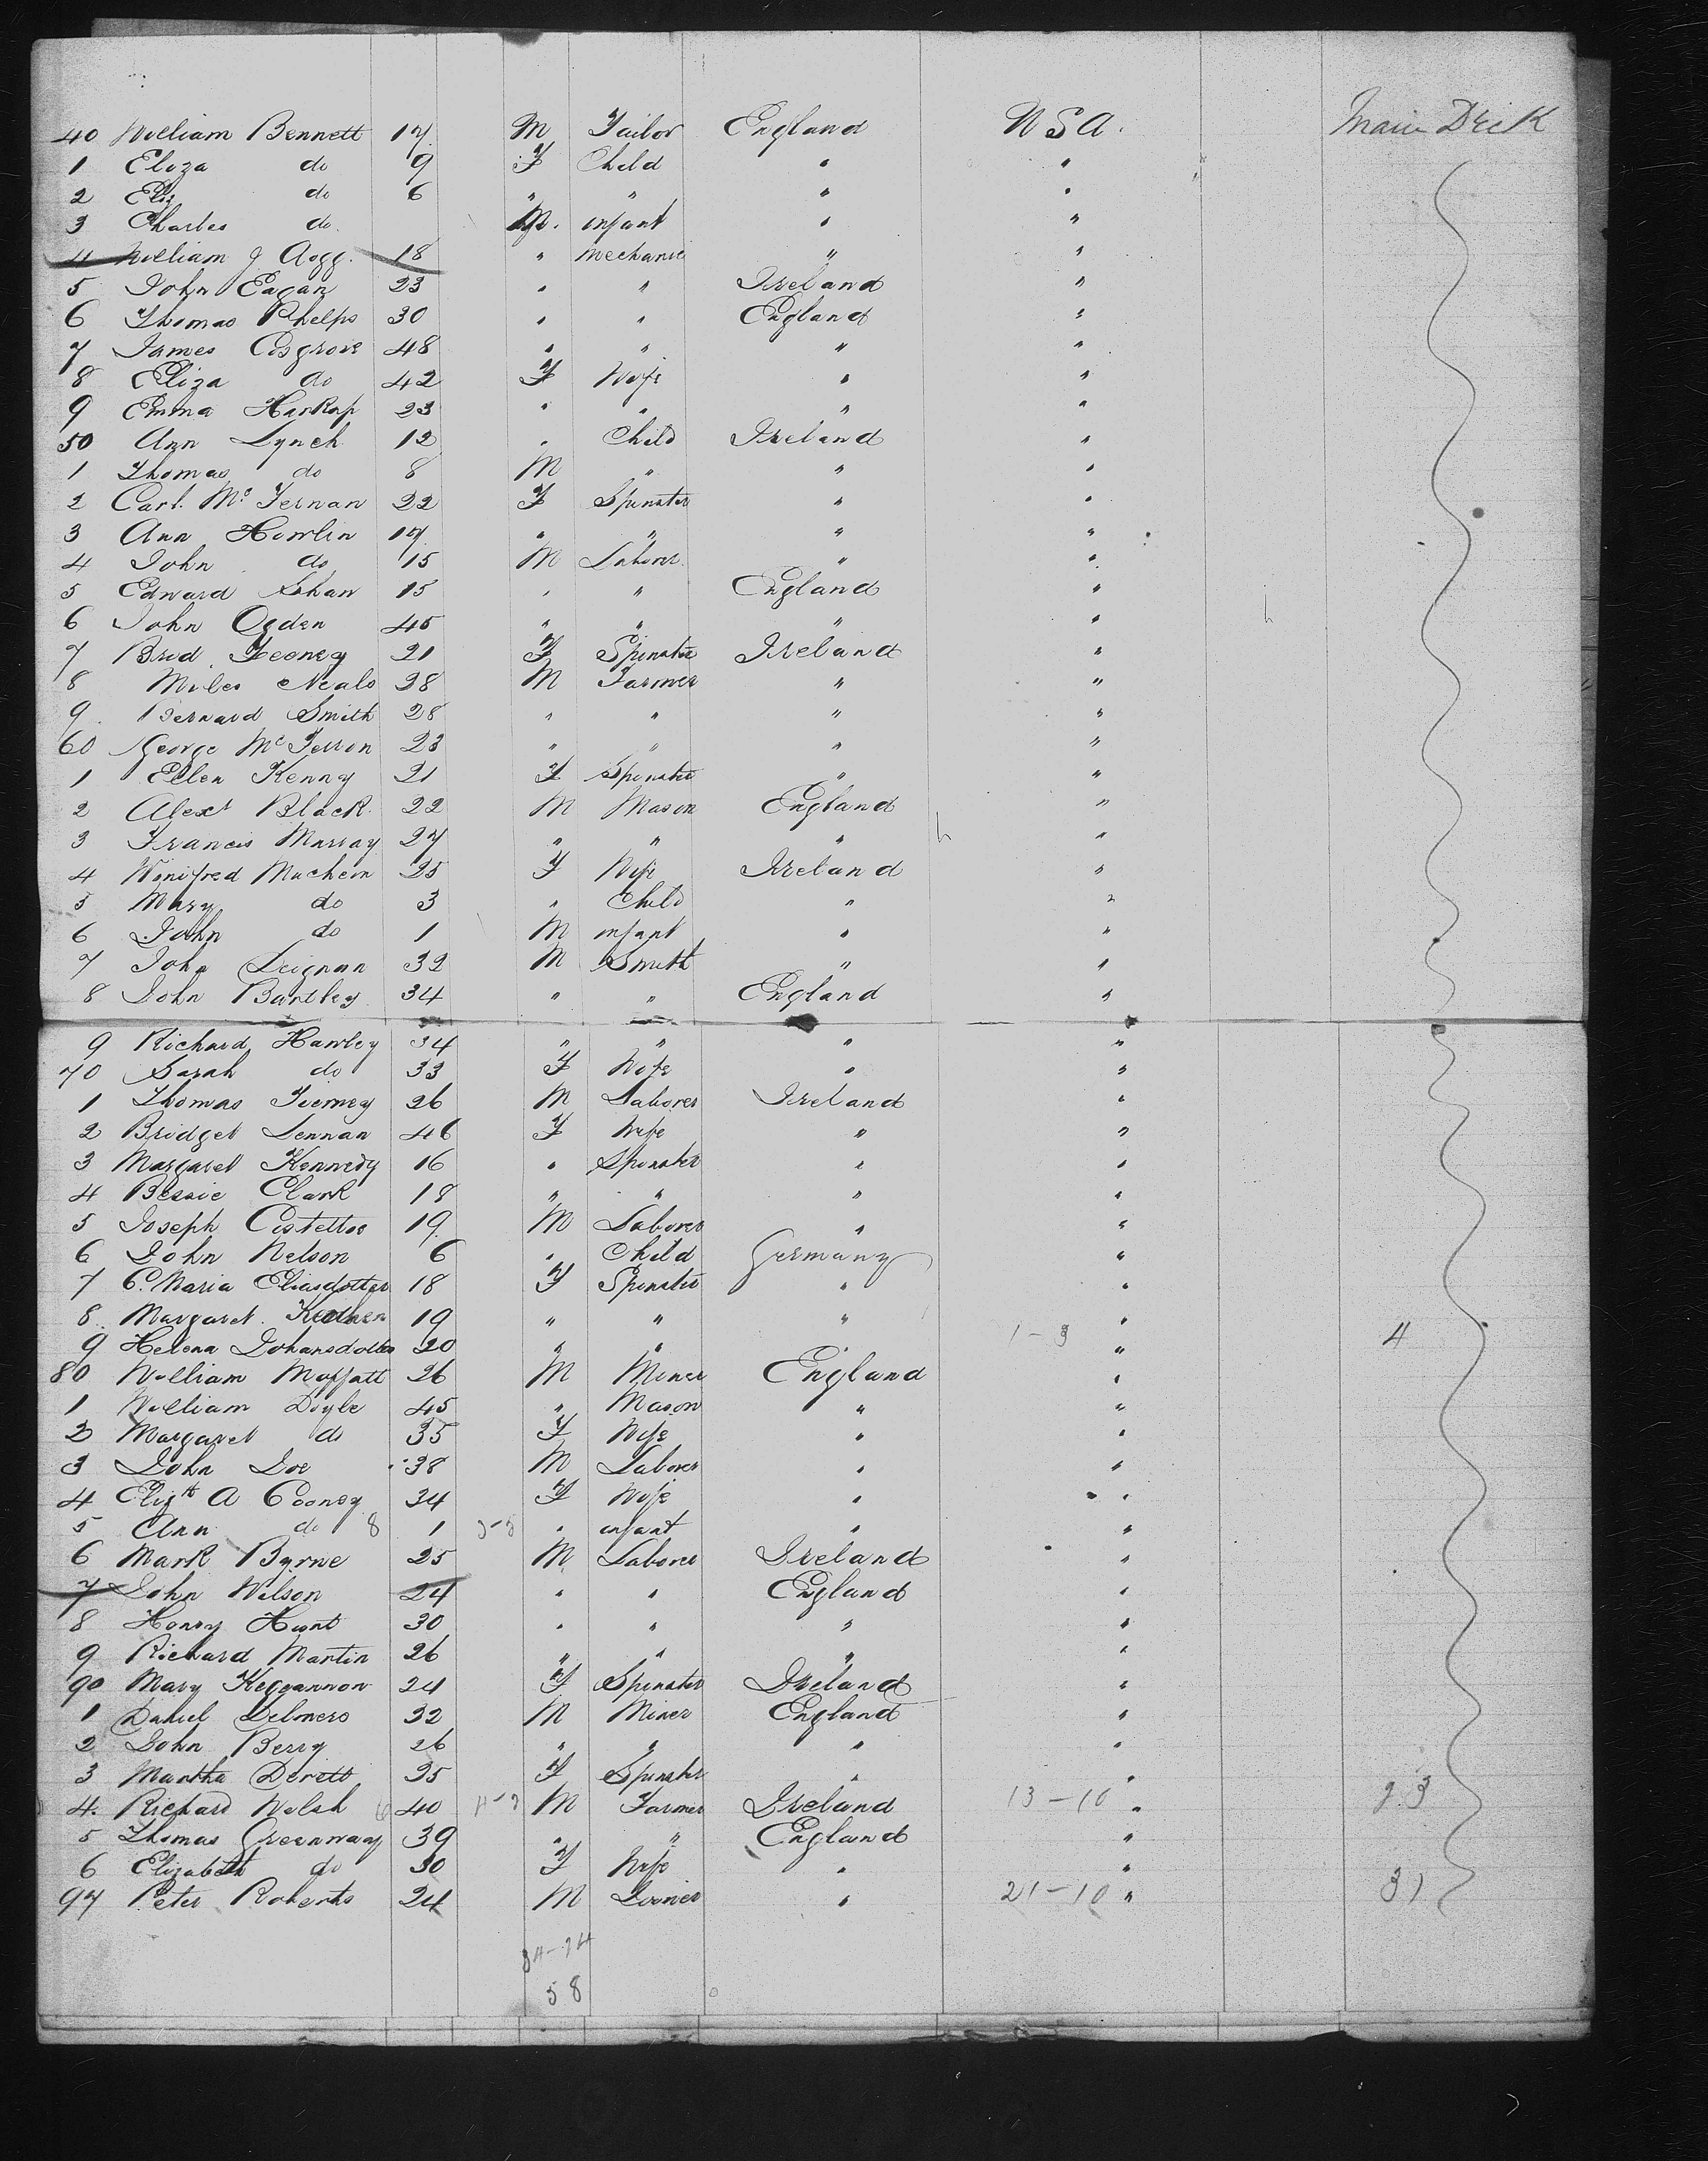 40 William Bennett 17 M Tailor England U S A. Main Deck
1 Eliza do 9 F Child " "
2 Eliz do 6 " " " "
3 Charles do. M. infant " "
4 William J 18 " Mechanic " "
5 John Eagan 23 " " Ireland "
6 Thomas Phelps 30 " " England "
7 James Cosgrove 48 " " " "
8 Eliza do 42 F Wife " "
9 Emma Harkap 23 " " " "
50 Ann Lynch 12 " Child Ireland "
1 Thomas do 8 M " " "
2 Carl. Mc Fernan 22 F Spinster " "
3 Ann Howlin 17 " " " "
4 John do 15 M Laborer " "
5 Edward Shaw 15 " " England "
6 John Ogden 45 " " " "
7 Brid. Feeney 21 F Spinster Ireland "
8 Miles Neals 28 M Farmer " "
9 Bernard Smith 28 " " " "
60 George Mc Ferron 23 " " " "
1 Ellen Kenny 21 F Spinster " "
2 Alexr Black 22 M Mason England "
3 Francis Murray 27 " " " "
4 Winifred Machem 25 F Wife Ireland "
5 Mary do 3 " Child " "
6 John do 1 M infant " "
7 John Deignan 32 M Smith " "
8 John Bartley 34 " " England "
9 Richard Hawley 34 " " " "
70 Sarah do 33 F Wife " "
1 Thomas Tierney 26 M Laborer Ireland "
2 Bridget Lennan 46 F Wife " "
3 Margaret Kennedy 16 " Spinster " "
4 Bessie Clark 18 " " " "
5 Joseph Costelloe 19 M Laborer " "
6 John Nelson 6 " Child Germany "
7 C. Maria Eliasdotter 18 F Spinster " "
8 Margaret 19 " " " "
9 Helena Johansdotter 20 " " " 1-3 " 4
80 William Moffatt 26 M Miner England "
1 William Doyle 45 " Mason " "
2 Margaret do 35 F Wife " "
3 John Doe 38 M Laborer " "
4 Elizth A Cooney 34 F Wife " "
5 Ann do 8 1 " infant " "
6 Mark Byrne 25 M Laborer Ireland "
7 John Wilson 24 " " England "
8 Henry Hunt 30 " " " "
9 Richard Martin 26 " " " "
90 Mary Keggannon 24 F Spinster Ireland "
1 Daniel Delmers 32 M Miner England "
2 John Berry 26 " " " "
3 Martha Derett 35 F Spinster " "
4 Richard Welsh 40 M Farmer Ireland 13-10 " 23
5 Thomas Greenway 39 " " England "
6 Elizabeth do 30 F Wife " "
97 Peter Roberts 24 M Joiner " 21-10 " 31
58